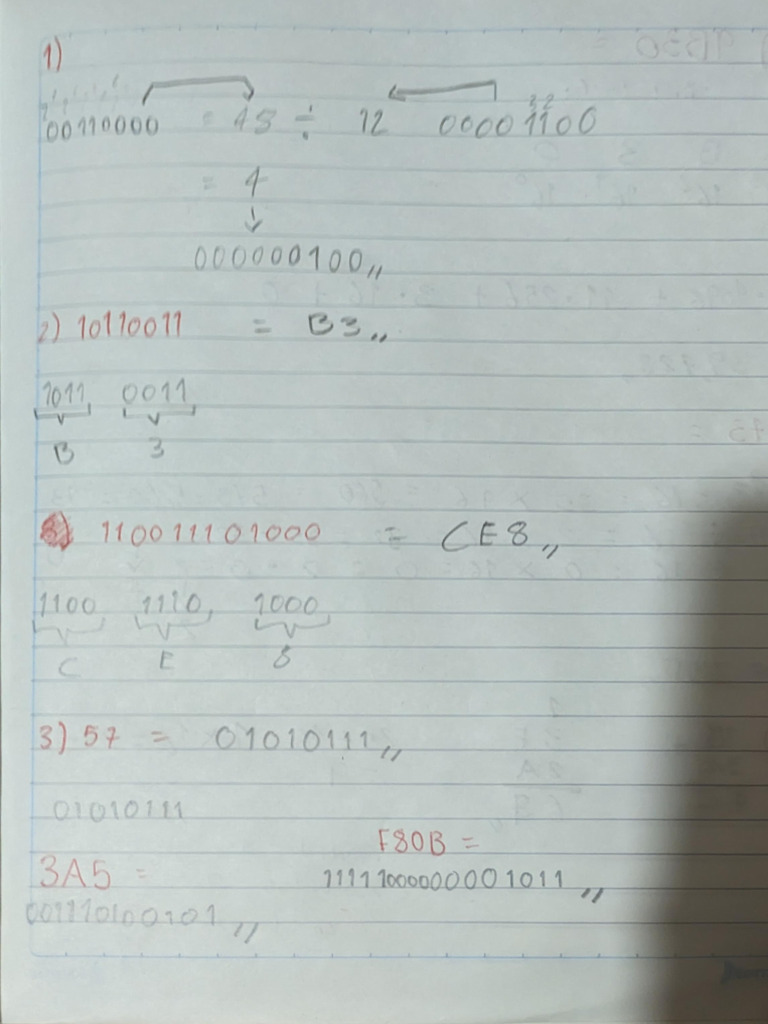 1)
00110000 = 48 ÷ 12 00001100
= 4
000000100,,
2) 10110011 = B3,,
1011 0011
B 3
110011101000 = CE8,,
1100 1110 1000
C E 8
3) 57 = 01010111,,
01010111
F80B =
3A5 = 1111100000001011,,
001110100101,,